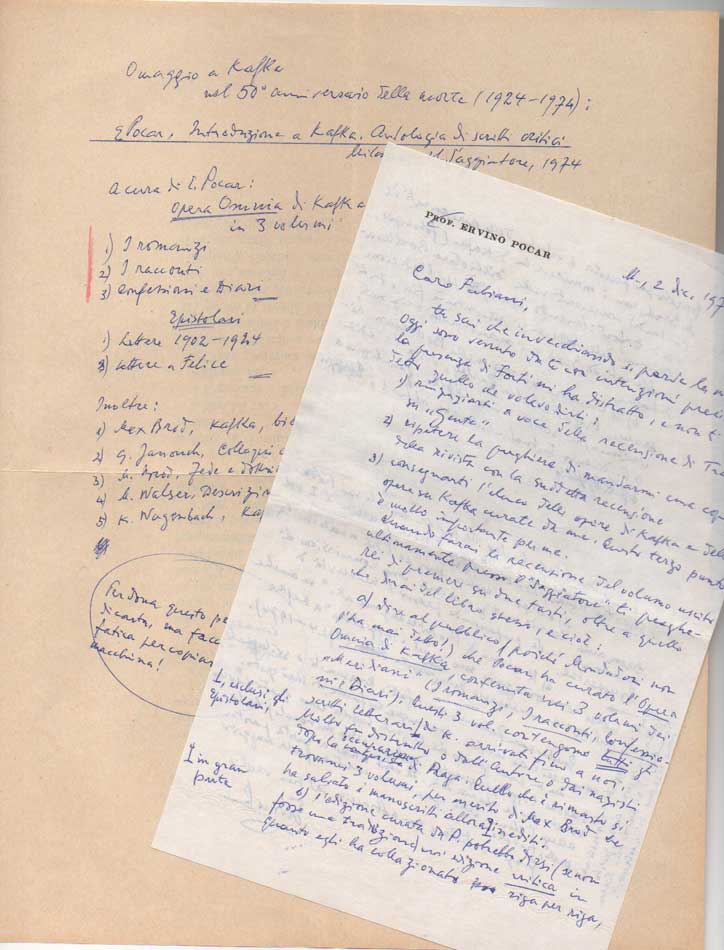 Omaggio a Kafka
nel 50° anniversario della morte (1924-1974):
E. Pocar, Introduzione a Kafka. Antologia di scritti critici
Saggiatore, 1974
A cura di E. Pocar:
Opera Omnia di Kafka
in 3 volumi
1) I romanzi
2) I racconti
3) Confessioni e Diari
Epistolari
1) Lettere 1902-1924
2) Lettere a Felice
Inoltre:
1) Max Brod, Kafka,
2) G. Janouch, Colloqui
3) M. Brod, Fede e
4) M. Walser, Descrizion
5) K. Wagenbach, Kaf
Perdona questo pe
di carta, ma
fatica per copiar
macchina!
PROF. ERVINO POCAR
M., 2 dic. 197
Caro Fabiani,
tu sai che invecchiando si perde la m
Oggi sono venuto da te con intenzioni prec
la presenza di Forti mi ha distratto, e non t
detto quello che volevo dirti:
1) ringraziarti a voce della recensione di Tra
su "Gente"
2) ripetere la preghiera di mandarmi una cop
della rivista con la suddetta recensione
3) consegnarti l'elenco delle opere di Kafka e dell
opere su Kafka curate da me. Questo terzo punt
è molto importante per me.
Quando farai la recensione del volume uscito
ultimamente presso il "Saggiatore" ti preghe-
rei di premere su due tasti, oltre a quello
che dirai del libro stesso, e cioè:
a) dire al pubblico (poiché Mondadori non
l'ha mai detto!) che Pocar ha curato l'Opera
Omnia di Kafka, contenuta nei 3 volumi dei
"Meridiani" (I romanzi, I racconti, Confessio-
ni e Diari). Questi 3 vol. contengono tutti gli
scritti letterari di K. arrivati fino a noi,
esclusi gli
Epistolari.
Molto fu distrutto o dall'autore o dai nazisti
dopo la occupazione di Praga. Quello che è rimasto si
trova nei 3 volumi, per merito di Max Brod che
ha salvato i manoscritti allora inediti.
in gran
parte
b) l'edizione curata da P. potrebbe dirsi (se non
fosse una traduzione) una edizione critica in
quanto egli ha collazionato riga per riga,